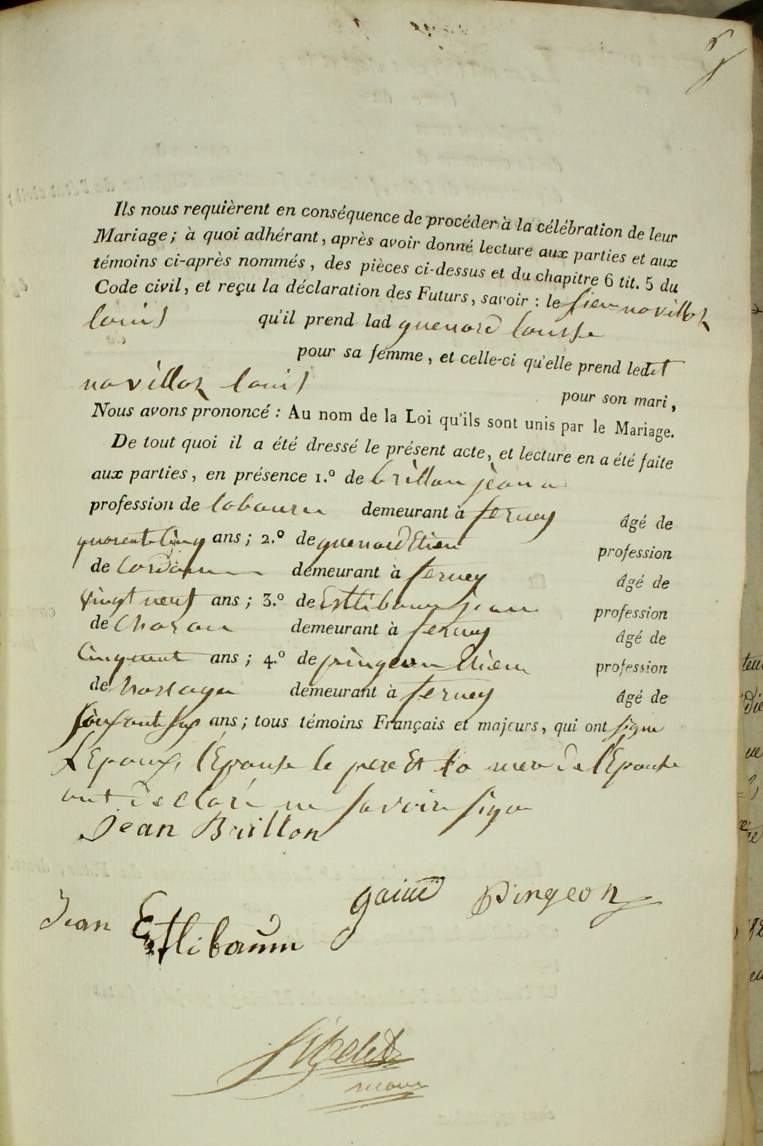 Ils nous requièrent en conséquence de procéder à la célébration de leur
Mariage ; à quoi adhérant, après avoir donné lecture aux parties et aux
témoins ci-après nommés, des pièces ci-dessus et du chapitre 6 tit. 5 du
Code civil, et reçu la déclaration des Futurs, savoir : le sieur novilloz
louis qu'il prend lad quenard
pour sa femme, et celle-ci qu'elle prend ledit
novilloz louis pour son mari,
Nous avons prononcé : Au nom de la Loi qu'ils sont unis par le Mariage.
De tout quoi il a été dressé le présent acte, et lecture en a été faite
aux parties, en présence 1.º de brillon jean
profession de laboureur demeurant à ferney âgé de
quarente Cinq ans ; 2.º de quenard Etien profession
de Cordonn demeurant à ferney âgé de
vingt neuf ans ; 3.º de Estlibaum jean profession
de Charon demeurant à ferney âgé de
Cinquent ans ; 4.º de pingeon Etien profession
de horloger demeurant à ferney âgé de
ans ; tous témoins Français et majeurs, qui ont signe
L'Epoux, l'Epouse le pere Et la mere de l'Epouse
ont declaré ne savoir signe
Jean Brillon
Jean Estlibaum Pingeon
maire